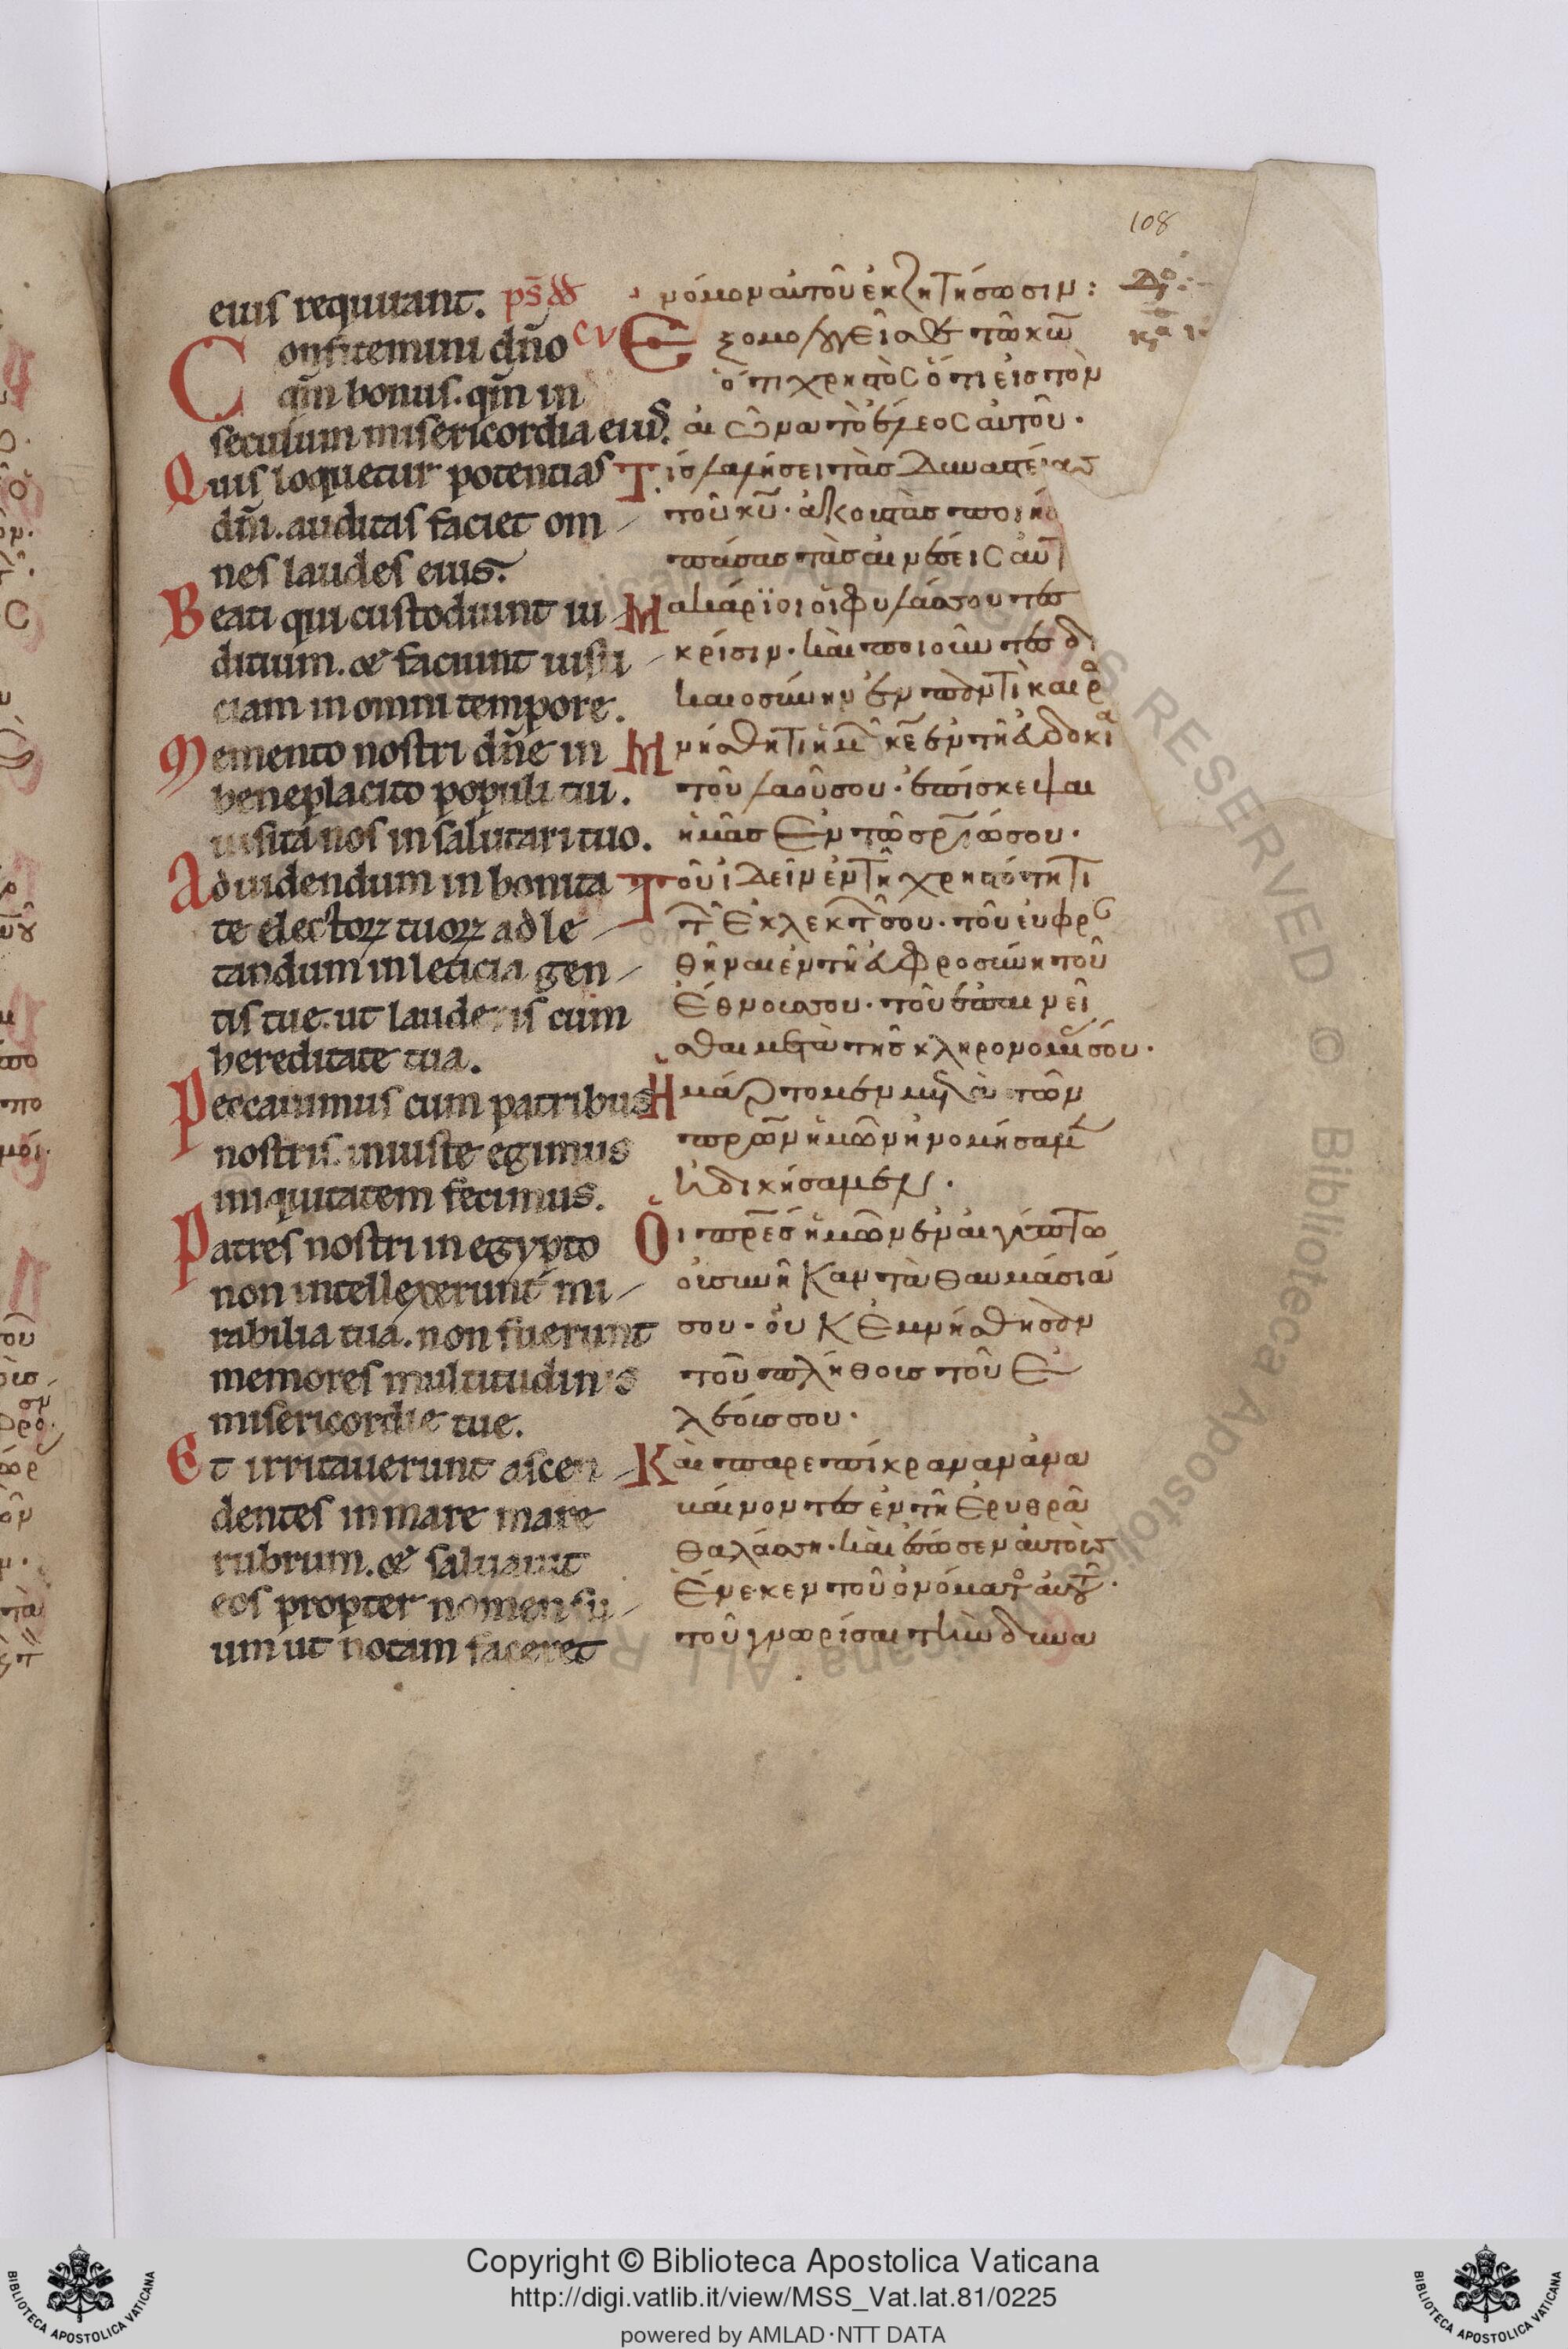 108
eius requirant. ps̄ dd
cv
Confitemini dn̄o
qm̄ bonus. qm̄ in
seculum misericordia eius.
Quis loquetur potentias
dn̄i. auditas faciet om
nes laudes eius.
Beati qui custodiunt iu
dicium. & faciunt iusti
ciam in omni tempore.
Memento nostri dn̄e in
beneplacito populi tui.
uisita nos in salutari tuo.
Ad uidendum in bonita
te electoꝝ tuoꝝ ad le
tandum in leticia gen
tis tue. ut lauderis cum
hereditate tua.
Peccauimus cum patribus
nostris. iniuste egimus
iniquitatem fecimus.
Patres nostri in egypto
non intellexerunt mi
rabilia tua. non fuerunt
memores multitudinis
misericordie tue.
Et irritauerunt ascen
dentes in mare mare
rubrum. & saluauit
eos propter nomen su
um ut notam faceret
νόμον αὐτοῦ ἐκζητήσωσιν:
Ἐξομολογεῖσθε τῶ κω̄
ὅτι χρηστὸς ὅτι εἰς τὸν
αἰῶνα τὸ ἔλεος αὐτοῦ.
Τίς λαλήσει τὰς δυναστείας
τοῦ κῡ. ἀκουστὰς ποιή
πάσας τὰς αἰνέσεις αὐτ
Μακάριοι οἱ φυλάσσοντες
κρίσιν. καὶ ποιοῦντες δι
καιοσύνην ἐν παντὶ καιρ
Μνήσθητι ἡμ κε̄ ἐν τῆ εὐδοκί
τοῦ λαοῦ σου. ἐπίσκεψαι
ἡμᾶς ἐν τῶ σρ̄ίω σου.
Τοῦ ἰδεῖν ἐν τῆ χρηστότητι
τ ἐκλεκτ σου. τοῦ εὐφρ
θῆναι ἐν τῆ εὐφροσύνη τοῦ
ἔθνους σου. τοῦ ἐπαινεῖ
σθαι μετὰ τῆς κληρονομί σου.
Ἡμάρτομεν μετὰ τῶν
πρω̄ν ἡμῶν ἠνομήσαμ
ἠδικήσαμεν.
Οἱ πρ̄ες ἡμῶν ἐν αἰγύπτω
οὐ συνῆκαν τὰ θαυμάσιά
σου. οὐκ ἐμνήσθησαν
τοῦ πλήθους τοῦ ἐ
λέους σου.
Καὶ παρεπίκραναν ἀνα
βαίνοντες ἐν τῆ ἐρυθρᾶ
θαλάσση. καὶ ἔσωσεν αὐτοὺς
ἕνεκεν τοῦ ὀνόματο αὐτ.
τοῦ γνωρίσαι τὴν δυνα
Copyright © Biblioteca Apostolica Vaticana
http://digi.vatlib.it/view/MSS_Vat.lat.81/0225
powered by AMLAD·NTT DATA